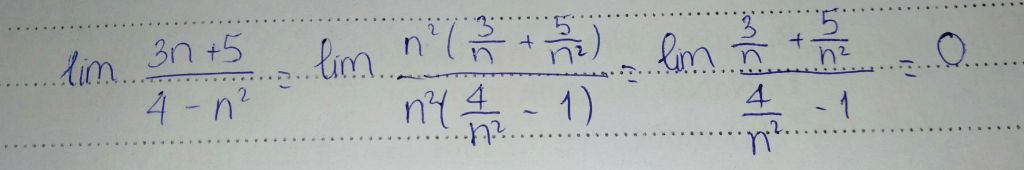 lim (3n+5)/(4-n²) = lim (n²(3/n + 5/n²))/(n²(4/n² - 1)) = lim (3/n + 5/n²)/(4/n² - 1) = 0